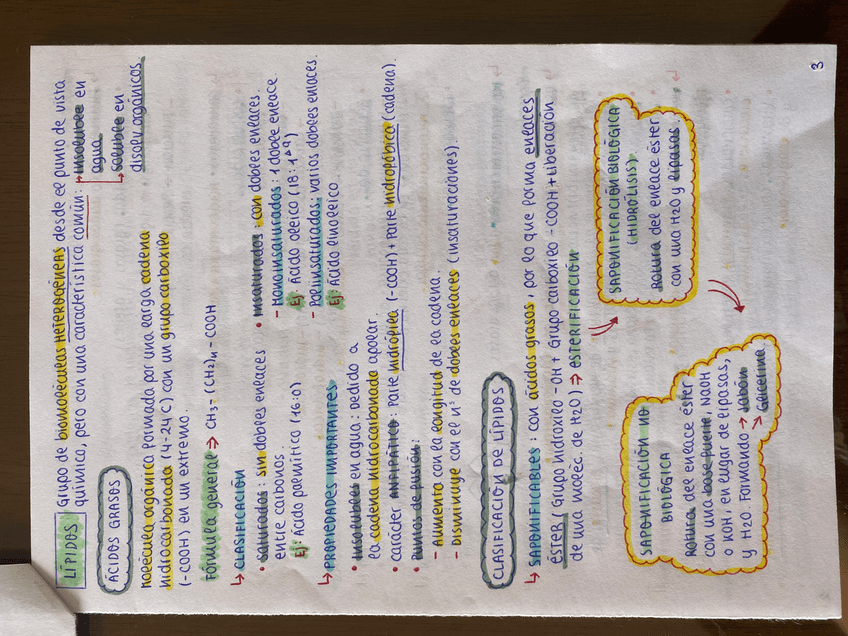 LÍPIDOS Grupo de biomoléculas HETEROGÉNEAS desde el punto de vista
química, pero con una característica común: insoluble en
agua
soluble en
disolv orgánicos
ÁCIDOS GRASOS
Molécula orgánica formada por una larga cadena
hidrocarbonada (4-24 C) con un grupo carboxilo
(-COOH) en un extremo.
Fórmula general ⇒ CH₃ - (CH₂)n - COOH
↳ CLASIFICACIÓN
• saturados: sin dobles enlaces
entre carbonos.
Ej: Ácido palmítico (16:0)
• insaturados: con dobles enlaces.
- Monoinsaturados: 1 doble enlace
Ej: Ácido oleico (18:1^Δ9)
- Poliinsaturados: varios dobles enlaces.
Ej: Ácido linoleico
↳ PROPIEDADES IMPORTANTES
• Insolubles en agua: debido a
la cadena hidrocarbonada apolar.
• carácter ANFIPÁTICO: parte hidrófila (-COOH) + parte hidrofóbica (cadena).
• Puntos de fusión:
- Aumenta con la longitud de la cadena.
- Disminuye con el nº de dobles enlaces (insaturaciones).
CLASIFICACIÓN DE LÍPIDOS
↳ SAPONIFICABLES: con ácidos grasos, por lo que forma enlaces
éster (Grupo hidroxilo -OH + Grupo carboxilo -COOH + liberación
de una molec. de H₂O) ⇒ ESTERIFICACIÓN
SAPONIFICACIÓN NO
BIOLÓGICA
Rotura del enlace éster
con una base fuerte, NaOH
o KOH, en lugar de lipasas,
y H₂O. Formando → Jabón
↘ Glicerina
SAPONIFICACIÓN BIOLÓGICA
(HIDRÓLISIS)
Rotura del enlace éster
con una H₂O y lipasas.
3